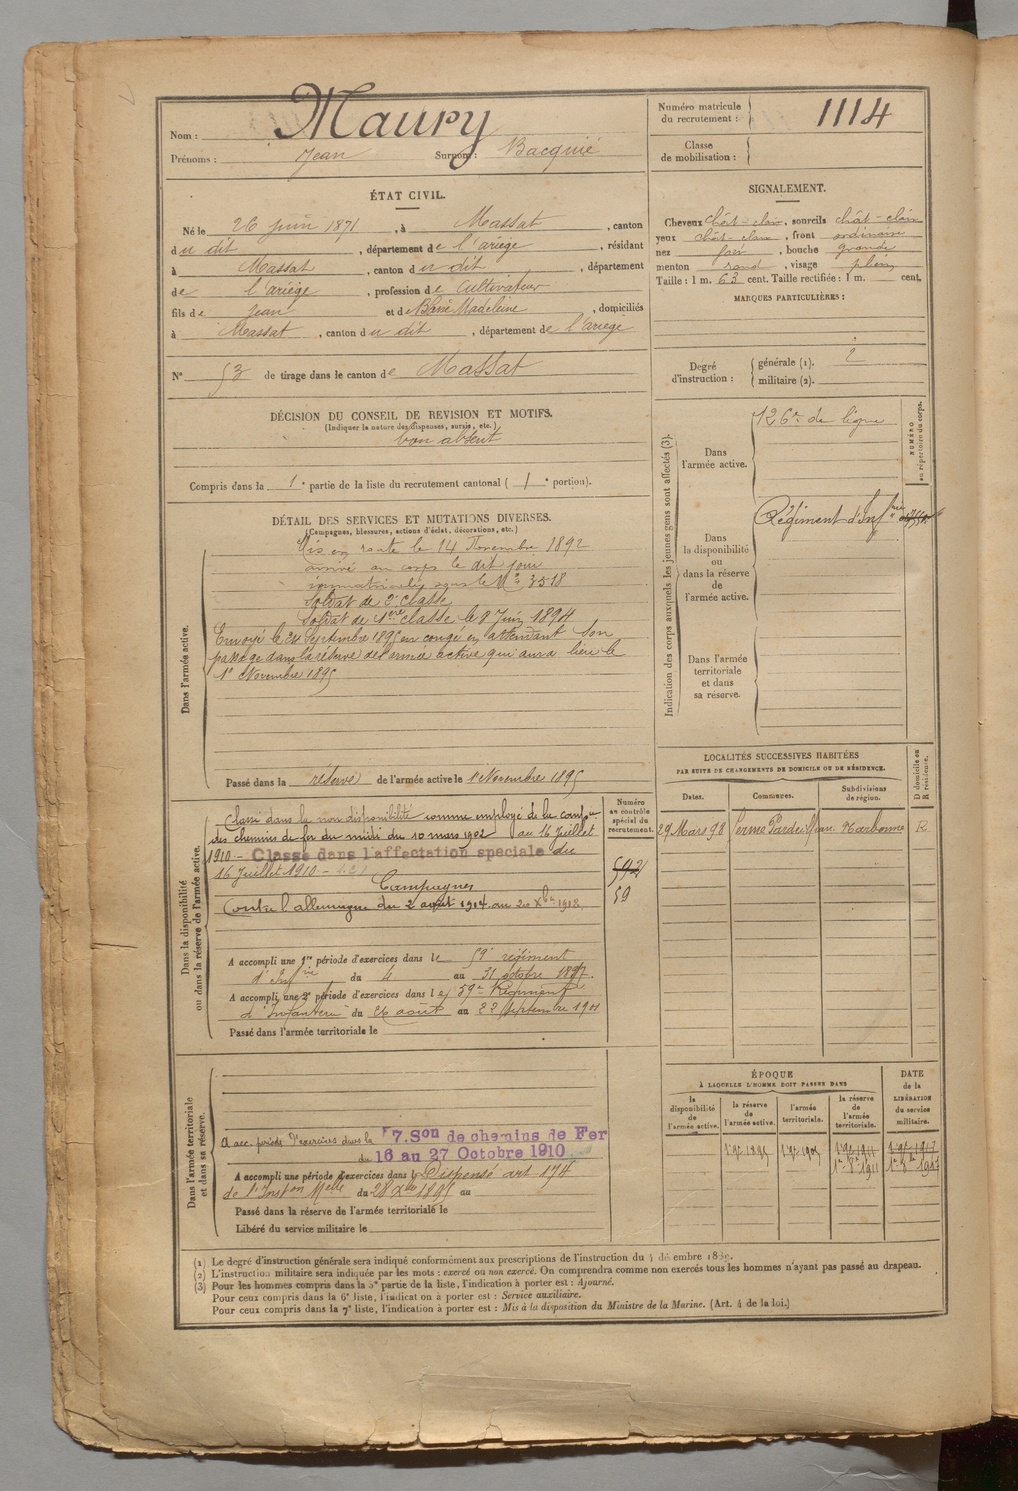 Nom : Maury
Prénoms : Jean Surnom : Bacquié
Numéro matricule du recrutement : 1114
Classe de mobilisation :
ÉTAT CIVIL.
Né le 26 juin 1871, à Massat, canton
du dit, département de l'ariège, résidant
à Massat, canton du dit, département
de l'ariège, profession de cultivateur
fils de Jean et de Madeleine, domiciliés
à Massat, canton du dit, département de l'ariège
N° 53 de tirage dans le canton de Massat
SIGNALEMENT.
Cheveux chât-clair, sourcils chât-clair
yeux chât-clair, front ordinaire
nez, bouche grande
menton rond, visage plein
Taille : 1 m. 63 cent. Taille rectifiée : 1 m. cent.
MARQUES PARTICULIÈRES :
Degré d'instruction : générale (1). 2
militaire (2).
DÉCISION DU CONSEIL DE REVISION ET MOTIFS.
(Indiquer la nature des dispenses, sursis, etc.)
bon absent
Compris dans la 1e partie de la liste du recrutement cantonal (1e portion).
DÉTAIL DES SERVICES ET MUTATIONS DIVERSES.
(Campagnes, blessures, actions d'éclat, décorations, etc.)
Dans l'armée active.
Mis en route le 14 Novembre 1892
arrivé au corps le dit jour
immatriculé sous le N° 3518
Soldat de 2e classe
Soldat de 1ère classe le 8 Juin 1894
Envoyé le 24 Septembre 1895 en congé en attendant son
passage dans la réserve de l'armée active qui aura lieu le
1er Novembre 1895
Passé dans la réserve de l'armée active le 1er Novembre 1895
Indication des corps auxquels les jeunes gens sont affectés (3).
NUMÉRO au répertoire du corps.
Dans l'armée active.
126e de ligne
Dans la disponibilité ou dans la réserve de l'armée active.
Régiment d'Infrie
Dans l'armée territoriale et dans sa réserve.
LOCALITÉS SUCCESSIVES HABITÉES
PAR SUITE DE CHANGEMENTS DE DOMICILE OU DE RÉSIDENCE.
Dates. Communes. Subdivisions de région. D domicile ou R résidence.
29 Mars 98 Narbonne R
Dans la disponibilité ou dans la réserve de l'armée active.
Numéro au contrôle spécial du recrutement.
Classé dans la non disponibilité comme employé de la compie
des chemins de fer du midi du 10 mars 1902 au 16 Juillet
1910 - Classé dans l'affectation spéciale du
16 Juillet 1910 -
Campagnes
Contre l'allemagne du 2 août 1914 au 20 Xbre 1918.
592
59
A accompli une 1re période d'exercices dans le 59e régiment
d'Infrie du 4 au 31 octobre 1897.
A accompli une 2e période d'exercices dans le 59e Régiment
d'Infanterie du 26 août au 22 Septembre 1901
Passé dans l'armée territoriale le
Dans l'armée territoriale et dans sa réserve.
A acc. période d'exercices dans la 7.Son de chemins de Fer
du 16 au 27 Octobre 1910
A accompli une période d'exercices dans le Dispensé art 174
du 28 Xbre 1895 au
Passé dans la réserve de l'armée territoriale le
Libéré du service militaire le
ÉPOQUE
À LAQUELLE L'HOMME DOIT PASSER DANS
la disponibilité de l'armée active. la réserve de l'armée active. l'armée territoriale. la réserve de l'armée territoriale.
DATE de la LIBÉRATION du service militaire.
1 9bre 1895 1 9bre 1905 1 9bre 1911 1 9bre 1917
1er 8bre 1911 1er 8bre 1917
(1) Le degré d'instruction générale sera indiqué conformément aux prescriptions de l'instruction du 4 décembre 1889.
(2) L'instruction militaire sera indiquée par les mots : exercé ou non exercé. On comprendra comme non exercés tous les hommes n'ayant pas passé au drapeau.
(3) Pour les hommes compris dans la 5e partie de la liste, l'indication à porter est : Ajourné.
Pour ceux compris dans la 6e liste, l'indication à porter est : Service auxiliaire.
Pour ceux compris dans la 7e liste, l'indication à porter est : Mis à la disposition du Ministre de la Marine. (Art. 4 de la loi.)